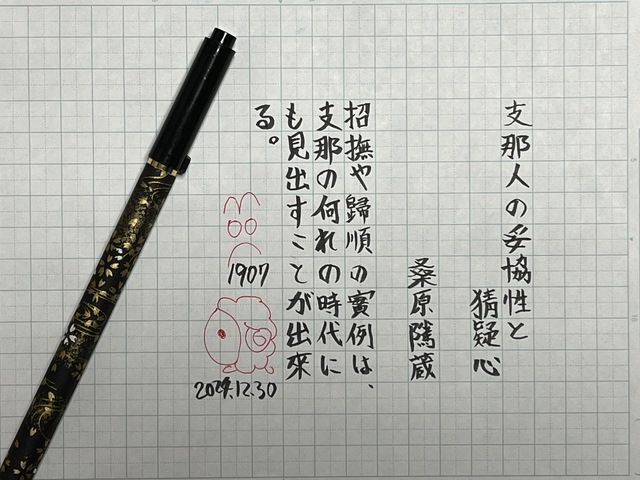 支那人の妥協性と
猜疑心
桑原隲蔵
招撫や歸順の實例は、
支那の何れの時代に
も見出すことが出來
る。
1907
2024.12.30